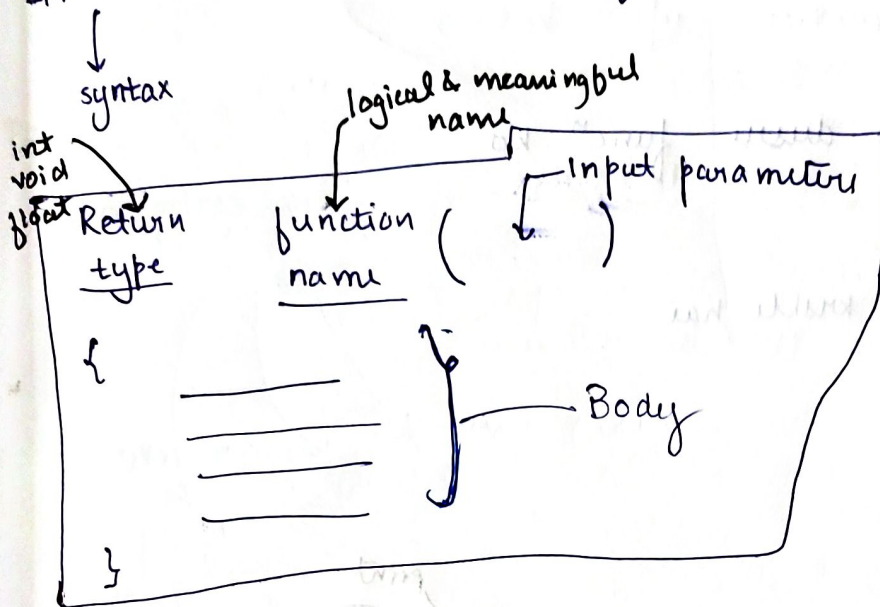 syntax
logical & meaningful
name
int
void
float
Input parameters
Return function ( )
type name
{
Body
}